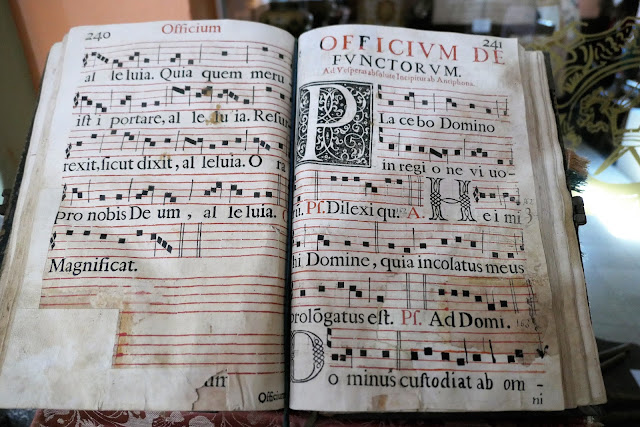 240
Officium
al le luia. Quia quem meru
ist i portare, al le, lu ia. Resur
rexit, sicut dixit, al leluia. O ra
pro nobis De um, al le luia.
Magnificat.
Officium
241
OFFICIVM DE
FVNCTORVM.
Ad Vesperas absolute Incipitur ab Antiphona.
PLa ce bo Domino
in regi o ne vi uo-
ru. Ps. Dilexi qu. A. He i mi
hi Domine, quia incolatus meus
prolōgatus est. Ps. Ad Domi.
Do minus custodiat ab om-
ni